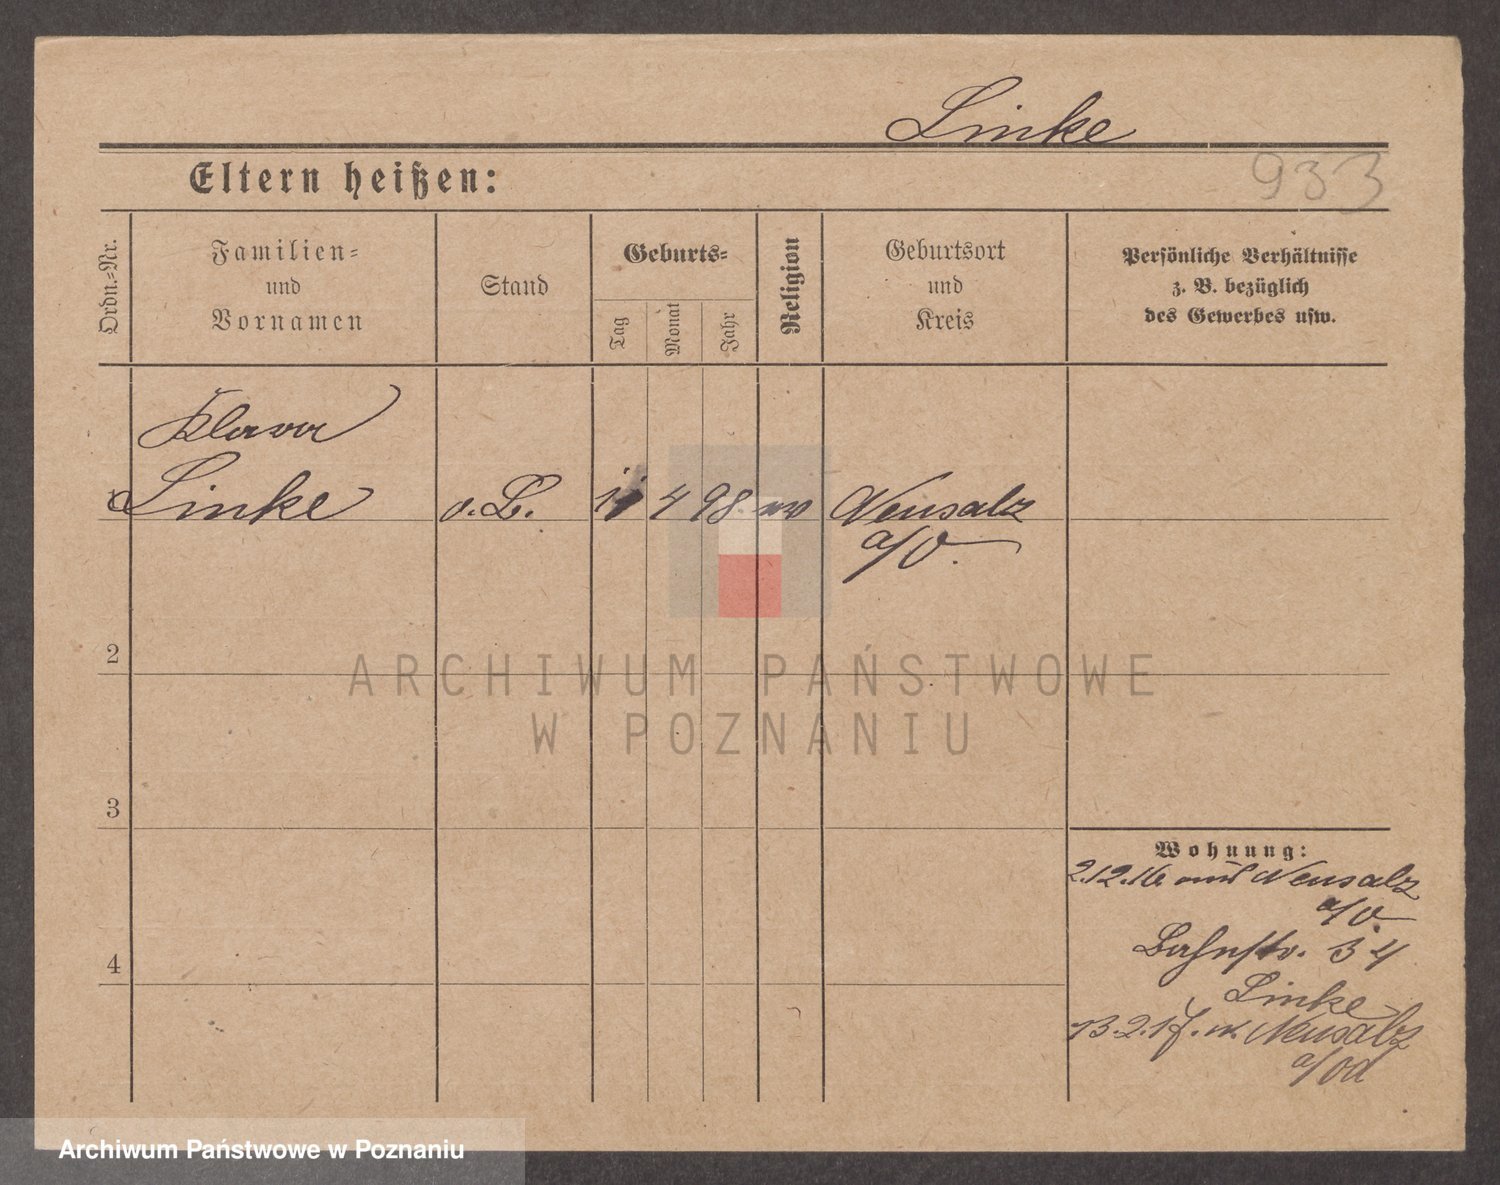 Linke
Eltern heißen:
933
Ordn.-Nr.
Familien-
und
Vornamen
Stand
Geburts-
Tag
Monat
Jahr
Religion
Geburtsort
und
Kreis
Persönliche Verhältnisse
z. B. bezüglich
des Gewerbes usw.
Klara
Linke
o. B.
4
98
Neusalz
a/O.
2
3
4
Wohnung:
2.12.16 aus Neusalz
a/O.
Bahnstr. 34
Linke
13.2.17. n. Neusalz
a/Od
ARCHIWUM PAŃSTWOWE
W POZNANIU
Archiwum Państwowe w Poznaniu